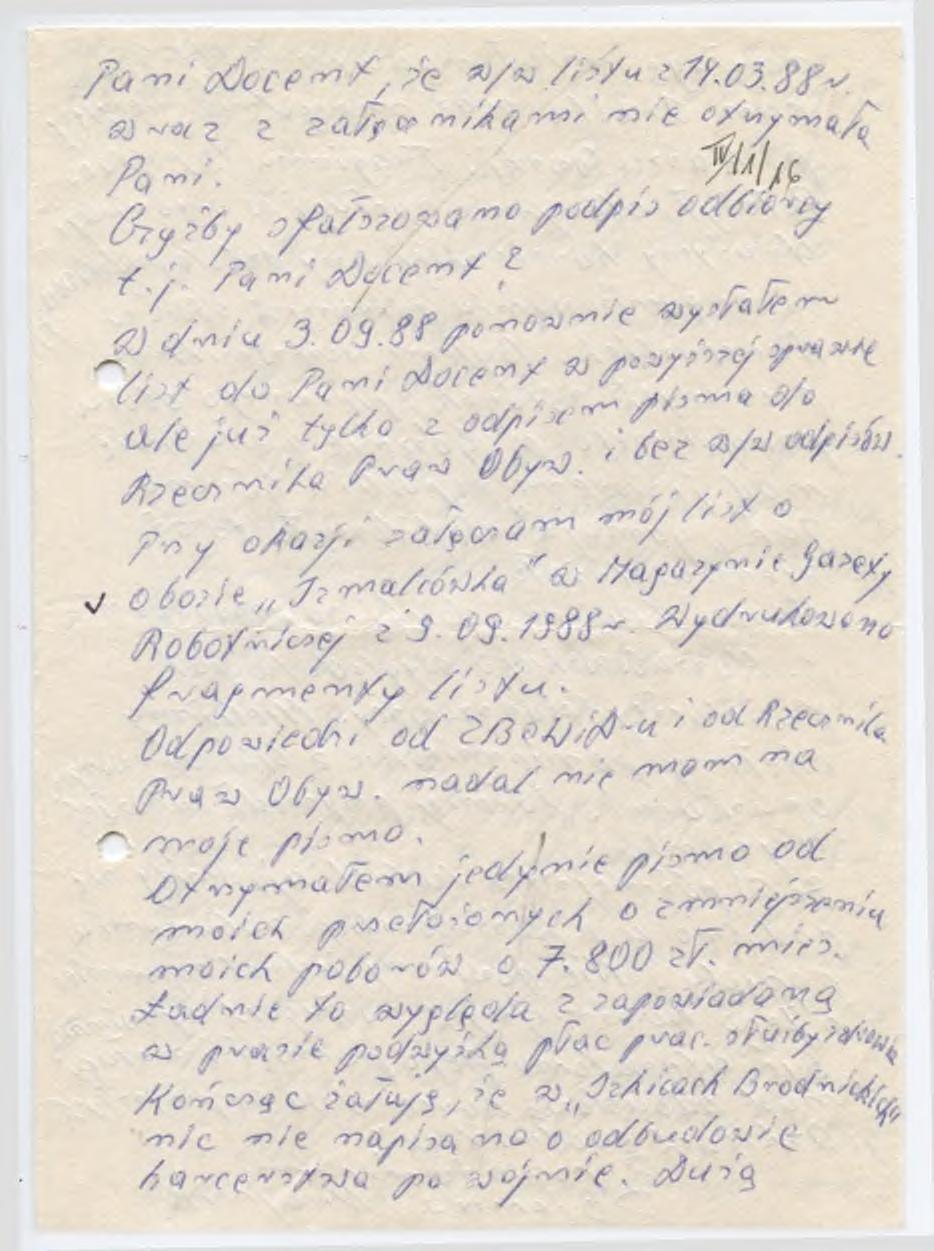 Pani Docent, że w/w listu z 14.03.88 r.
wraz z załącznikami nie otrzymała
Pani.
IV/1/16
Czyżby sfałszowano podpis odbiorcy
t.j. Pani Docent?
W dniu 3.09.88 ponownie wysłałem
list do Pani Docent w powyższej sprawie
ale już tylko z odpisem pisma do
Rzecznika Praw Obyw. i bez w/w odpisów.
Przy okazji załączam mój list o
✓ obozie „Szmalcówka" w Magazynie Gazety
Robotniczej z 9.09.1988 r. Wydrukowano
fragmenty listu.
Odpowiedzi od ZBoWiD-u i od Rzecznika
Praw Obyw. nadal nie mam na
moje pismo.
Otrzymałem jedynie pismo od
moich przełożonych o zmniejszeniu
moich poborów o 7.800 zł. mies.
Ładnie to wygląda z zapowiadaną
w prasie podwyżką płac prac. służby zdrowia
Kończąc żałuję, że w „Szkicach Brodnickich"
nic nie napisano o odbudowie
harcerstwa po wojnie. Dużą